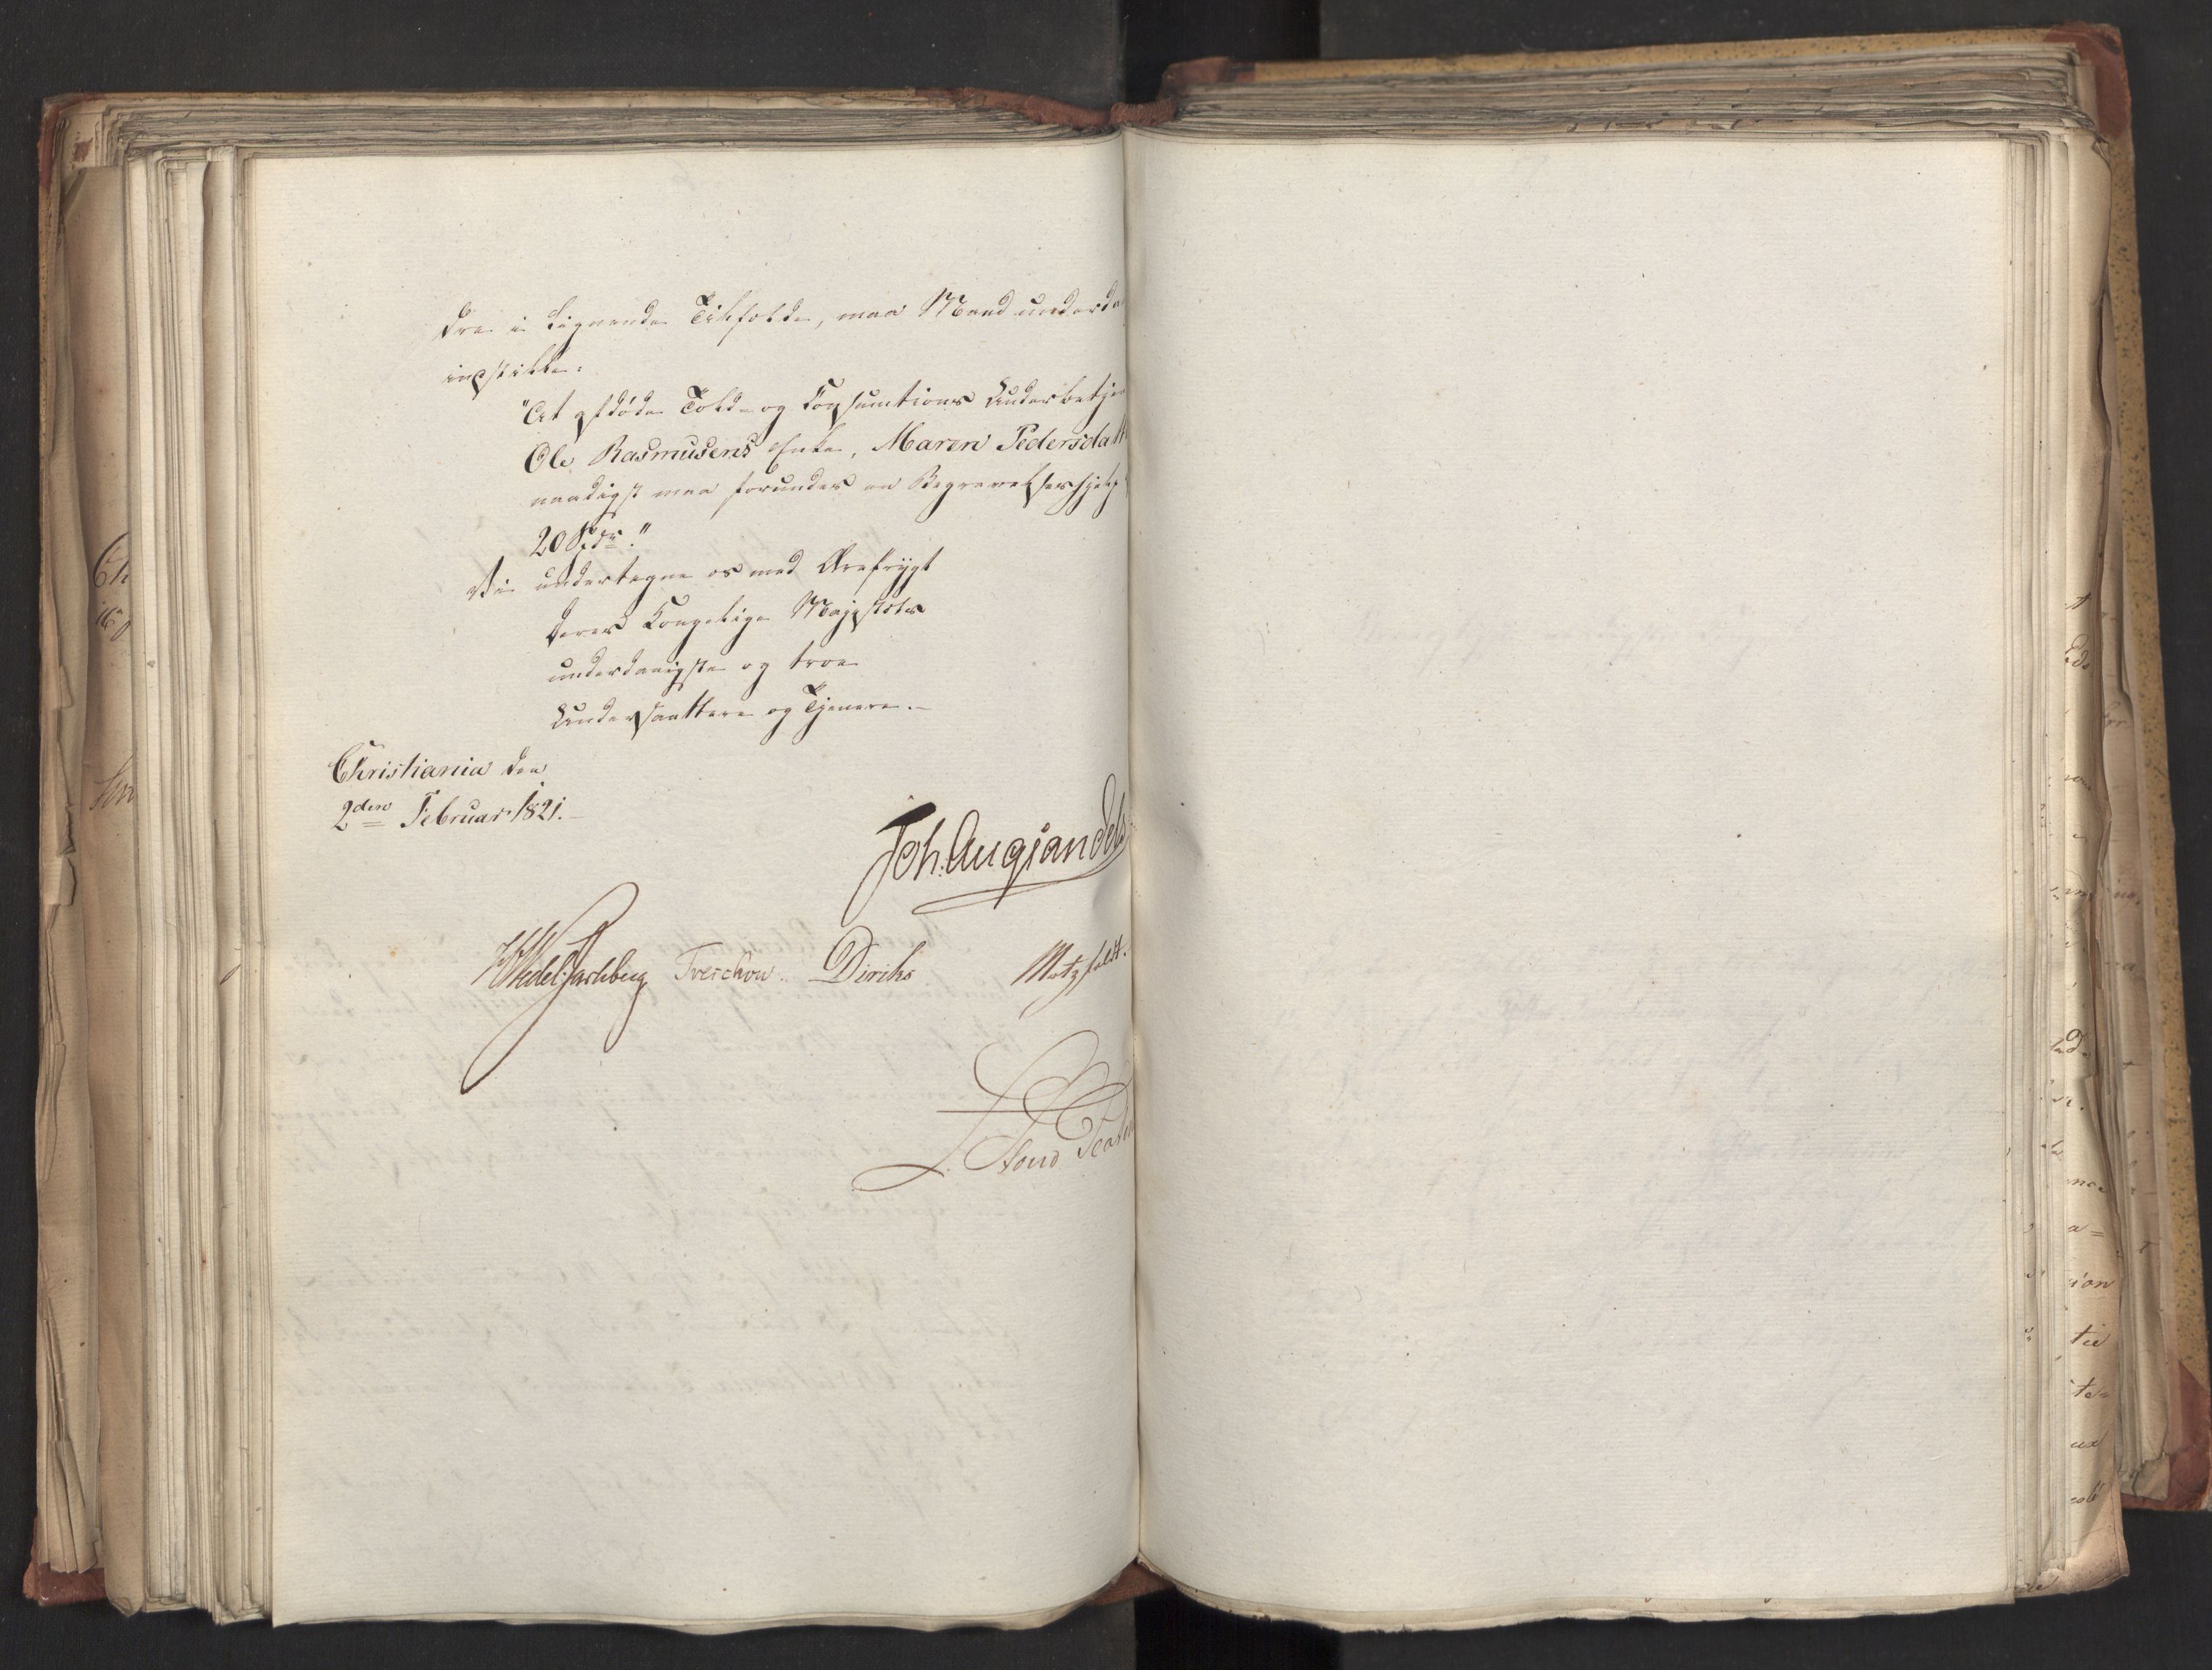 dre i lignende Tilfælde, maa Man underda
indstille:
"At afdøde Told- og Consumtions Underbetjen
Ole Rasmusens Enke, Maren Pedersdatt
naadigst maa forundes en Begravelseshjelp
20 Spdr."
Vi undertegne os med Ærefrygt
Deres Kongelige Majestæts
underdanigste og troe
Undersaattere og Tjenere.-
Christiania den
2den Februar 1821.-
Joh. Aug. Sandels
HWedel Jarlsberg Treschow. Diriks Motzfeldt.